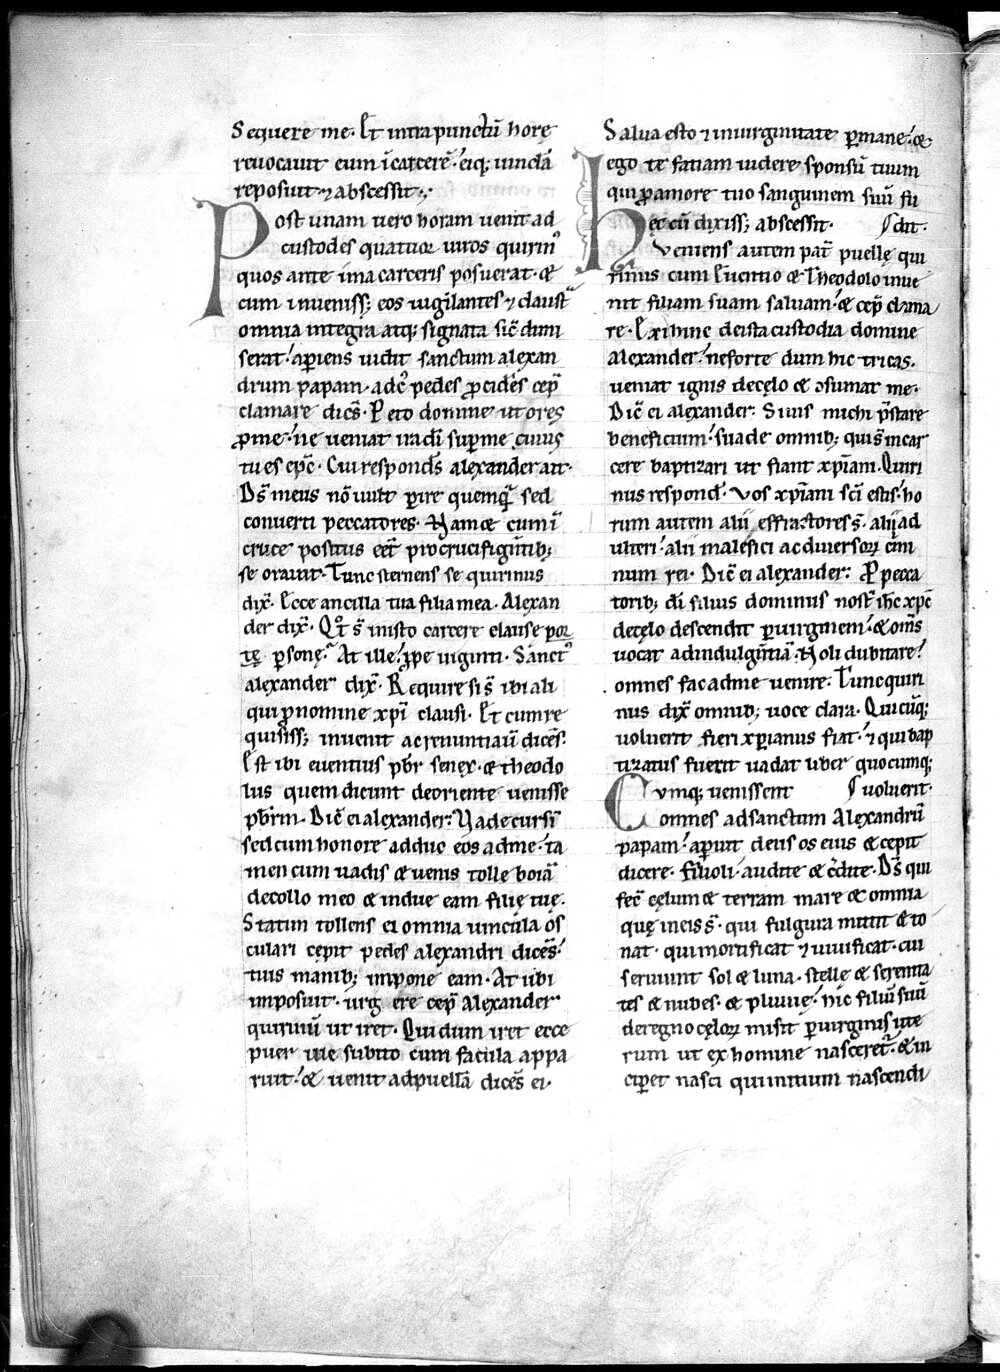 Sequere me. Et intra punctū horę
reuocauit eum ī carcerē. eiq; uincła
reposuit. ⁊ abscessit.
Post unam uero horam uenit ad
custodes quatuor uiros quirinꝰ
quos ante ima carceris posuerat. &
cum inueniss; eos uigilantes ⁊ claustᵃ
omnia integra atq; signata sic̄ dimi
serat. aꝑiens uidit sanctum alexan
drum papam. a dc̄ pedes ꝓcidēs cep̄
clamare dicēs. Peto domine ut oręs
ꝓ me. ne ueniat ira dī suꝑ me cuius
tu es ep̄c. Cui respondēs alexander ait.
D̄s meus nō uult ꝑire quemq̄ sed
conuerti peccatores. Nam & cum ī
cruce positus eēt pro crucifigentib;
se orauit. Tunc sternens se quirinus
dix̄. Ecce ancilla tua filia mea. Alexan
der dix̄. Qͦt s̄ in isto carcere clause por
tę ꝑsonę. At ille. ꝓpe uiginti. Sanctꝰ
alexander dix̄. Require si s̄ ibi ali
qui ꝓ nomine xp̄i clausi. Et cum re
quisiss; inuenit ac renuntiauit dicēs.
Est ibi euentius pb̄r senex. & theodo
lus quem dicunt de oriente uenisse
pb̄rm. Dic̄ ei alexander: Uade cursī
sed cum honore adduc eos ad me. ta
men cum uadis & uenis tolle boiā
de collo meo & indue eam filię tuę.
Statim tollens ei omnia uincula os
culari cepit pedes alexandri dicēs.
tuis manib; impone eam. At ubi
imposuit. urgere cep̄ Alexander
quirinū ut iret. Qui dum iret ecce
puer ille subito cum facula appa
ruit. & uenit ad puellā dicēs ei.
Salua esto ⁊ in uirginitate ꝑmane. &
ego te faciam uidere sponsū tuum
qui ꝓ amore tuo sanguinem suū fu
Hęc cū dixiss; abscessit. dit.
Veniens autem pat̄ puellę qui
rinus cum Euentio & Theodolo inue
nit filiam suam saluam. & cep̄ clama
re. Exi hinc de ista custodia domine
alexander. ne forte dum hic tricas.
ueniat ignis de cęlo & ꝯsumat me.
Dic̄ ei alexander: Si uis michi p̄stare
beneficium. suade omnib; qui s̄ in car
cere baptizari ut fiant xp̄iani. Quiri
nus respond̄. Vos xp̄iani sc̄i estis. ho
rum autem alii effractores s̄. alii ad
ulteri. alii malefici ac diuersor̨ c̄mi
num rei. Dic̄ ei alexander: Pro pecca
torib; dī filius dominus nost̄ ih̄c xp̄c
de cęlo descendit ꝑ uirginem. & oms̄
uocat ad indulgentiā. Noli dubitare.
omnes fac ad me uenire. Tunc quiri
nus dix̄ omnib; uoce clara. Quicūq;
uoluerit fieri xp̄ianus fiat. ⁊ qui bap
tizatus fuerit uadat liber quocumq;
Cumq; uenissent uoluerit.
omnes ad sanctum Alexandrū
papam. aꝑuit deus os eius & cepit
dicere. filioli audite & c̄dite. D̄s qui
fec̄ cęlum & terram mare & omnia
quę in eis s̄. qui fulgura mittit & to
nat. qui mortificat ⁊ uiuificat. cui
seruiunt sol & luna. stellę & serenita
tes & nubes. & pluuię. hic filiū suū
de regno cęlor̨ misit ꝑ uirginis ute
rum ut ex homine nasceret̄. & in
ciꝑet nasci qui initium nascendi